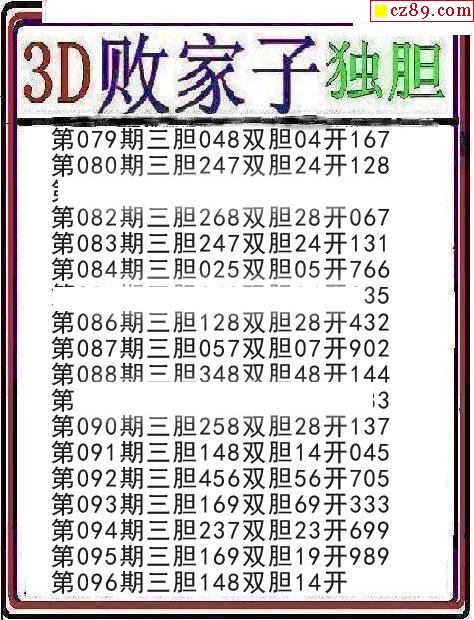 cz89.com
3D败家子独胆
第079期三胆048双胆04开167
第080期三胆247双胆24开128
第082期三胆268双胆28开067
第083期三胆247双胆24开131
第084期三胆025双胆05开766
35
第086期三胆128双胆28开432
第087期三胆057双胆07开902
第088期三胆348双胆48开144
第 3
第090期三胆258双胆28开137
第091期三胆148双胆14开045
第092期三胆456双胆56开705
第093期三胆169双胆69开333
第094期三胆237双胆23开699
第095期三胆169双胆19开989
第096期三胆148双胆14开